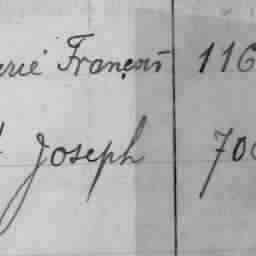 erié François 116
Joseph 700